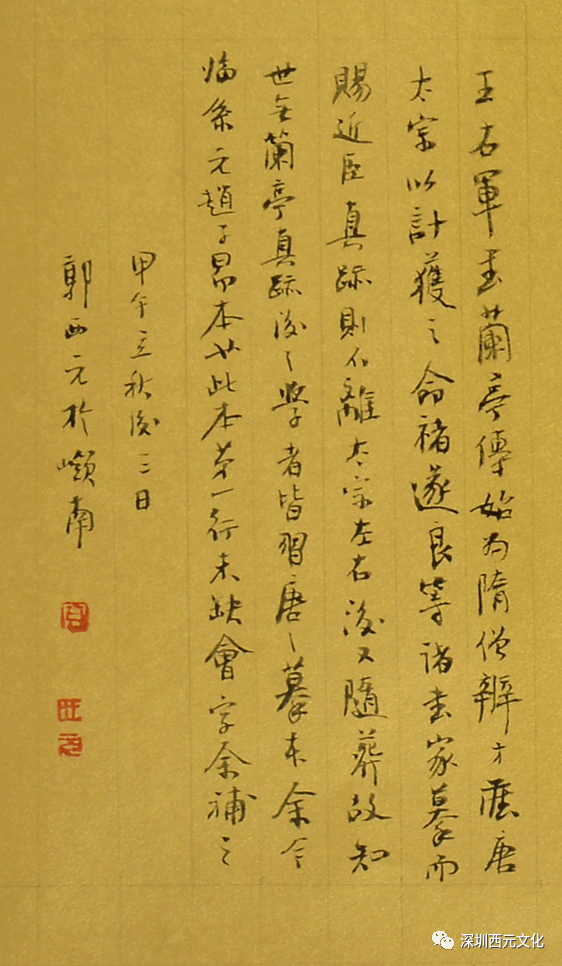 王右軍書蘭亭傳始為隋僧辨才唐
太宗以計獲之命褚遂良等諸書家摹而
賜近臣真跡則不離太宗左右後又隨葬故知
世無蘭亭真跡後之學者皆習唐之摹本余今
臨係元趙子昂本也此本第一行末缺會字余補之
甲午立秋後三日
郭西元於嶺南
深圳西元文化